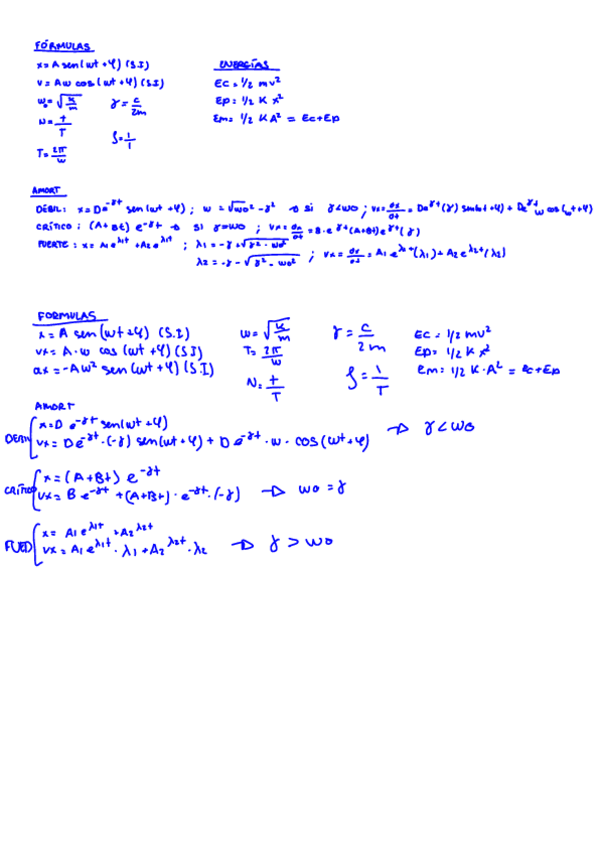 FÓRMULAS
x = A sen(ωt+φ) (S.I)
v = Aω cos(ωt+φ) (S.I)
ω₀ = √(k/m) γ = c/2m
N = t/T
f = 1/T
T = 2π/ω
ENERGÍAS
Ec = 1/2 mv²
Ep = 1/2 K x²
Em = 1/2 KA² = Ec+Ep
AMORT
DÉBIL: x = De^-γt sen(ωt+φ) ; ω = √ω₀²-γ² → si γ<ω₀ ; vx = dx/dt = De^γt(γ) sen(ωt+φ) + De^γt ω cos(ωt+φ)
CRÍTICO: (A+Bt) e^-γt → si γ=ω₀ ; vx = dx/dt = B·e^γt(A+Bt)e^γt(γ)
FUERTE: x = A₁e^λ₁t + A₂e^λ₁t ; λ₁ = -γ+√γ²-ω₀² ; vx = dx/dt = A₁e^λ₁t(λ₁) + A₂e^λ₂t(λ₂)
λ₂ = -γ-√γ²-ω₀²
FORMULAS
x = A sen(ωt+φ) (S.I)
vx = A·ω cos(ωt+φ) (S.I)
ax = -Aω² sen(ωt+φ) (S.I)
ω = √(k/m)
T = 2π/ω
N = t/T
γ = c/2m
f = 1/T
Ec = 1/2 mv²
Ep = 1/2 K x²
Em = 1/2 K·A² = Ec+Ep
AMORT
DEBIL x = D e^-γt sen(ωt+φ)
vx = De^-γt·(-γ) sen(ωt+φ) + De^-γt·ω·cos(ωt+φ) → γ<ω₀
CRÍTICO x = (A+Bt) e^-γt
vx = B e^-γt + (A+Bt)·e^-γt·(-γ) → ω₀ = γ
x = A₁e^λ₁t + A₂^λ₂t
vx = A₁e^λ₁t·λ₁ + A₂^λ₂t·λ₂ → γ > ω₀